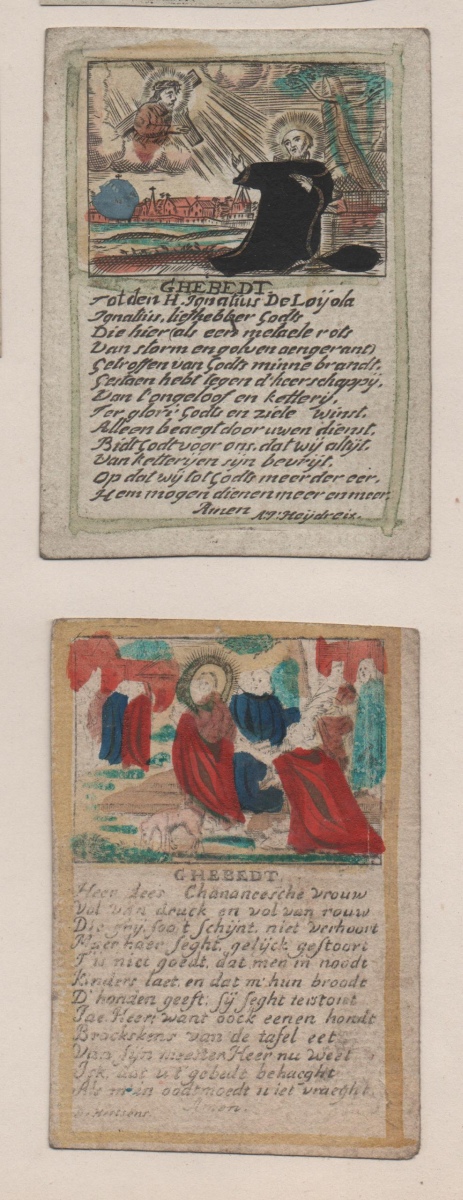 GHEBEDT
Tot den H. Ignatius De Loÿola
Ignatius, liefhebber Godts
Die hier (als een metaele rots
Van storm en golven aengerant)
Getroffen van Godts minne brandt,
Gestaen hebt tegen d'heerschappÿ,
Van 't ongeloof en ketterÿ,
Ter glori Godts en ziele winst,
Alleen beaegt door uwen dienst,
Bidt Godt voor ons, dat wÿ altÿt,
Van ketterÿen sÿn bevrÿt,
Op dat wÿ tot Godts meerder eer,
Hem mogen dienen meer en meer
Amen
Heÿdreix.
GHEBEDT
Heer dees Chananeesche vrouw
Vol van druck en vol van rouw
Die ghy, soo't schijnt, niet verhoort
Maer haer seght, gelijck gestoort
T'is niet goedt, dat men in noodt
Kinders laet, en dat m'hun broodt
D'honden geeft; sÿ seght terstont
Jae Heer, want oock eenen hondt
Brockskens van de tafel eet
Van sÿn meester Heer nu weet
Ick, dat u t'gebedt behaeght
Als m'in oodtmoedt u iet vraeght
Amen.